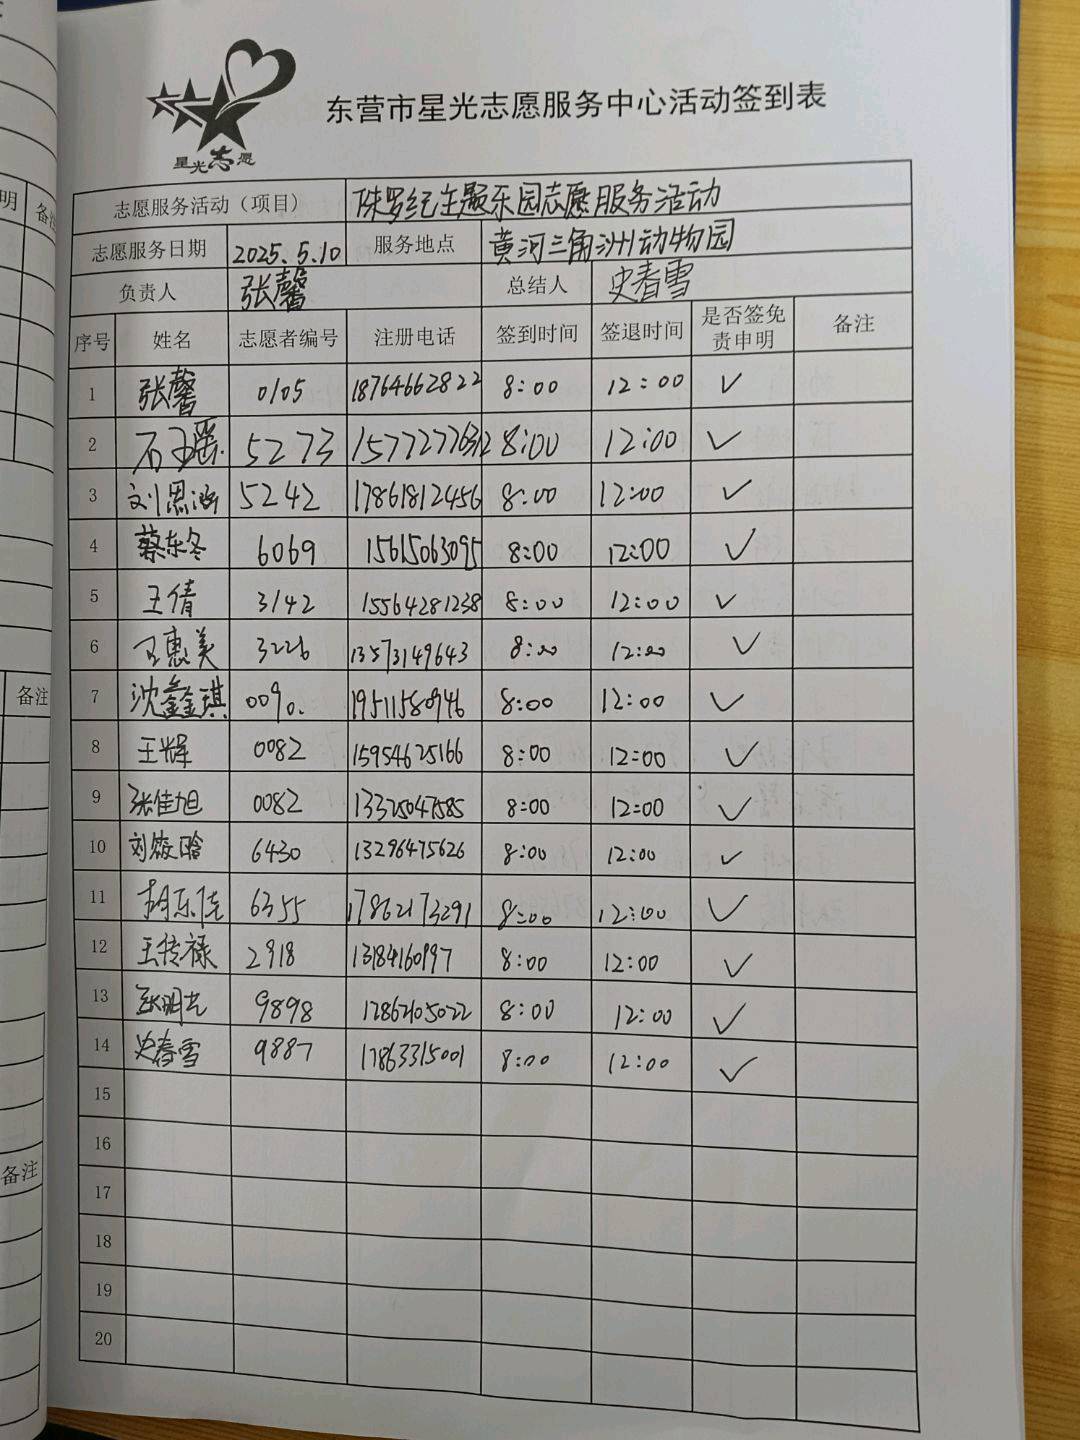 星光志愿
东营市星光志愿服务中心活动签到表
志愿服务活动（项目） 侏罗纪主题乐园志愿服务活动
志愿服务日期 2025.5.10 服务地点 黄河三角洲动物园
负责人 张馨 总结人 史春雪
序号 姓名 志愿者编号 注册电话 签到时间 签退时间 是否签免责申明 备注
1 张馨 0105 18764662822 8:00 12:00 ✓
2 石玉瑶 5273 8:00 12:00 ✓
3 刘思涵 5242 17861812456 8:00 12:00 ✓
4 蔡东冬 6069 15615063095 8:00 12:00 ✓
5 王倩 3142 15564281238 8:00 12:00 ✓
6 王惠美 3226 13573149643 8:00 12:00 ✓
7 沈鑫琪 0090. 19511580946 8:00 12:00 ✓
8 王辉 0082 15954625166 8:00 12:00 ✓
9 张佳旭 0082 13325047585 8:00 12:00 ✓
10 刘筱晗 6430 13296475626 8:00 12:00 ✓
11 胡东佳 6355 17862173291 8:00 12:00 ✓
12 王传禄 2918 13184160997 8:00 12:00 ✓
13 9898 17862105022 8:00 12:00 ✓
14 史春雪 9887 17863315001 8:00 12:00 ✓
15
16
17
18
19
20
明 备注
备注
备注